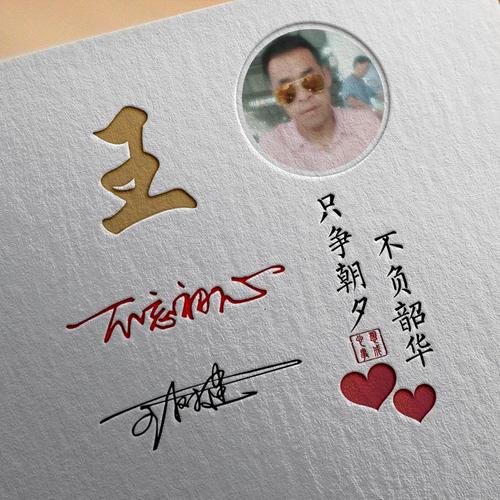 王
不忘初心
只争朝夕
不负韶华